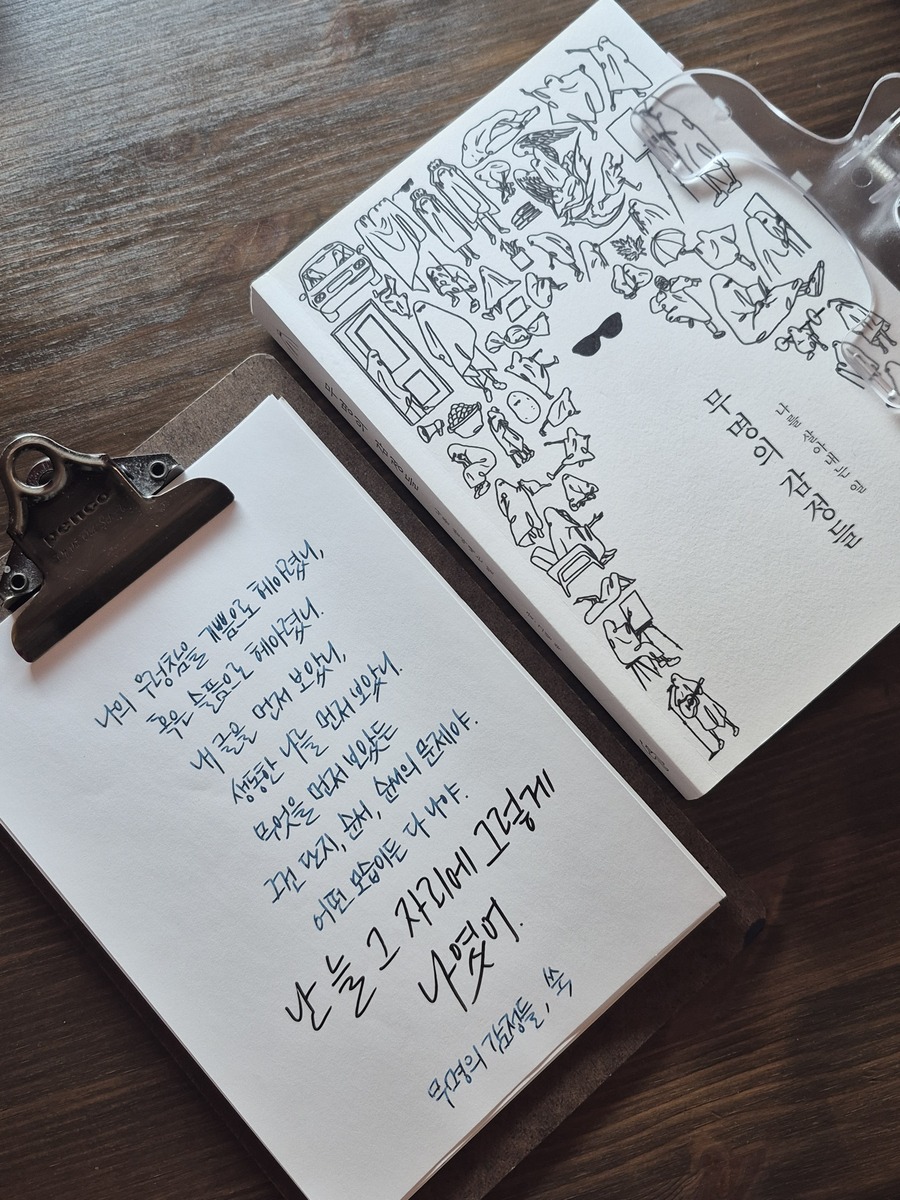 penco
나의 우렁참을 기쁨으로 헤아렸니,
혹은 슬픔으로 헤아렸니.
내 글을 먼저 보았니,
생동한 나를 먼저 보았니.
무엇을 먼저 보았든
그건 단지, 순서, 순서의 문제야.
어떤 모습이든 다 나야.
난 늘 그 자리에 그렇게
나였어.
무명의 감정들, 쑥
나를 살아내는 일
무명의 감정들
무명의 감정들